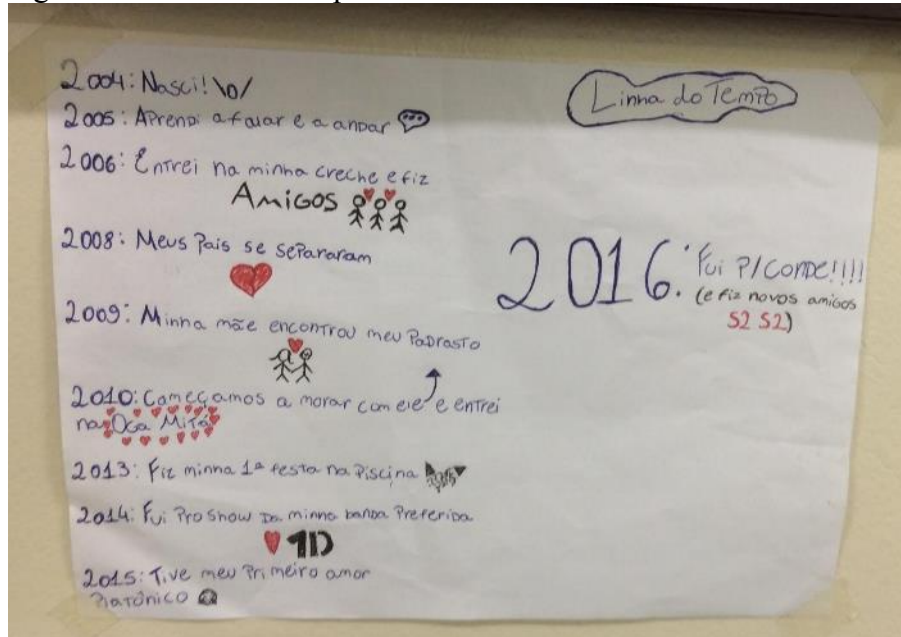 2004: Nasci! \o/
2005: Aprendi a falar e a andar
2006: Entrei na minha creche e fiz
Amigos
2008: Meus Pais se separaram
2009: Minha mãe encontrou meu Padrasto
2010: Começamos a morar com ele e entrei
na Oga Mitá
2013: Fiz minha 1ª festa na Piscina
2014: Fui Pro Show da minha banda Preferida
1D
2015: Tive meu Primeiro amor
Platônico
Linha do Tempo
2016: Fui P/ Conde!!!!
(e fiz novos amigos
S2 S2)